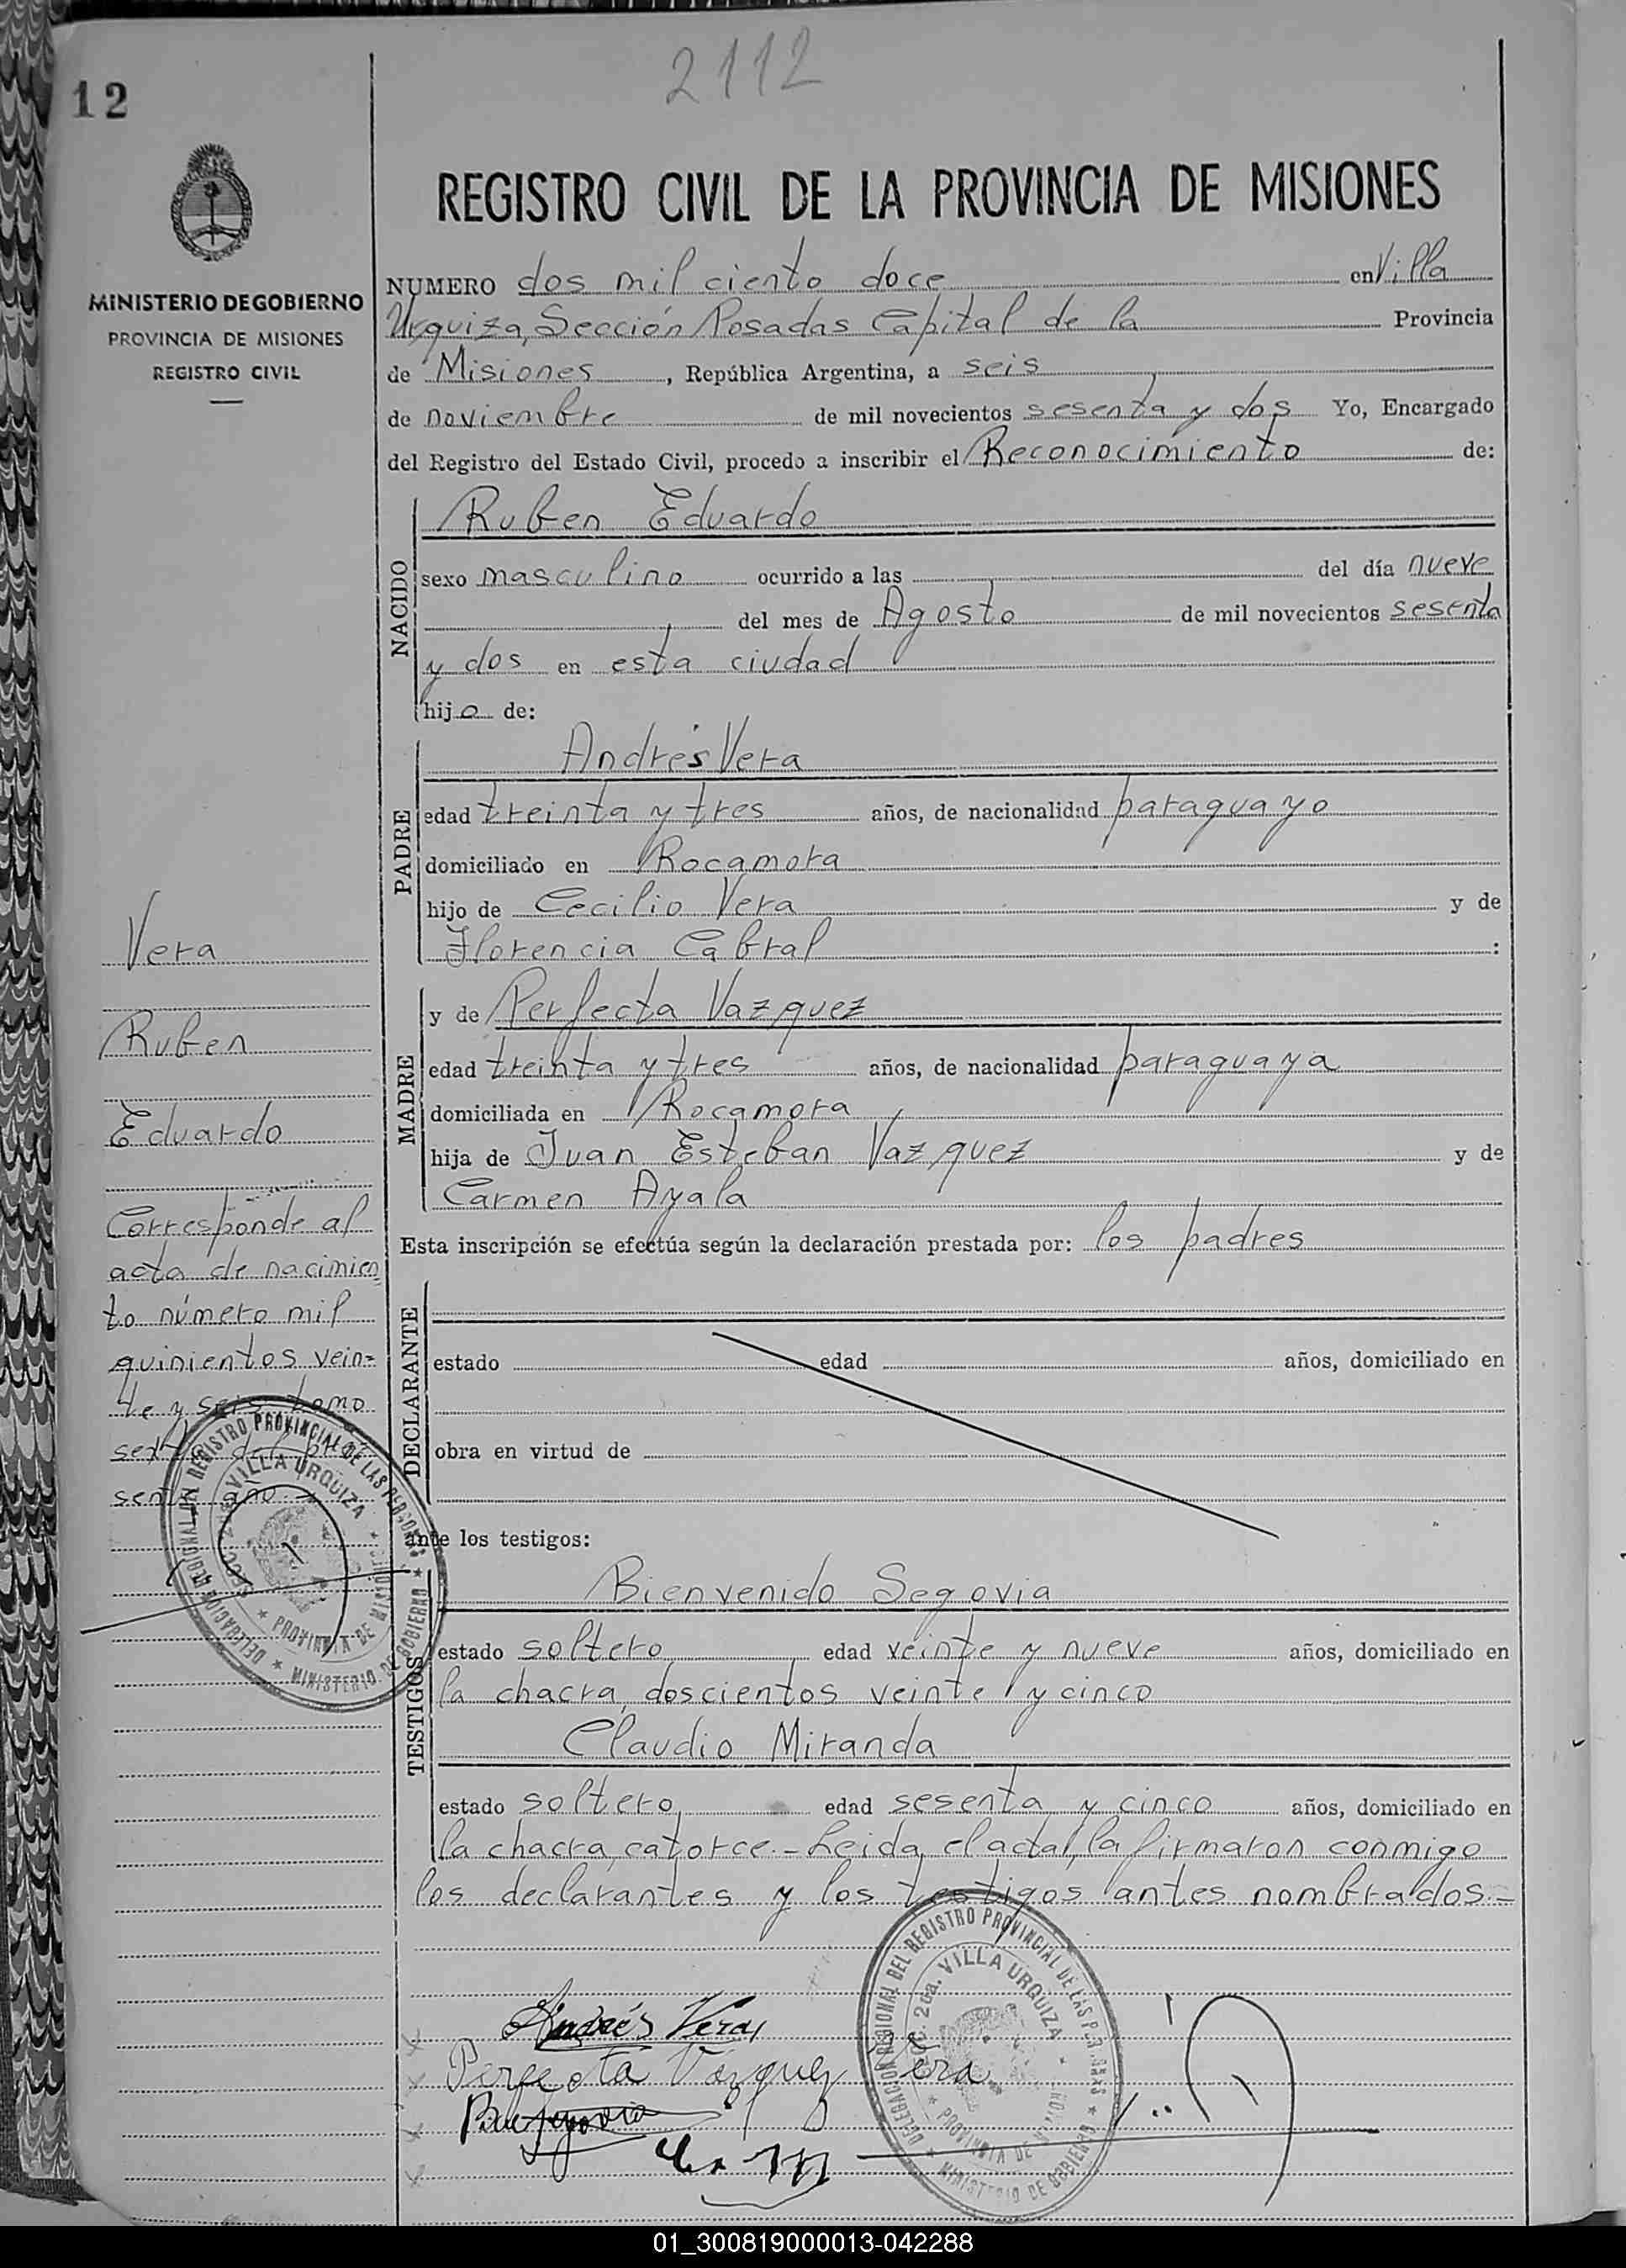 2112
12
REGISTRO CIVIL DE LA PROVINCIA DE MISIONES
MINISTERIO DE GOBIERNO
PROVINCIA DE MISIONES
REGISTRO CIVIL
NUMERO dos mil ciento doce en Villa
Urquiza, Sección Posadas Capital de la Provincia
de Misiones, República Argentina, a seis
de noviembre de mil novecientos sesenta y dos Yo, Encargado
del Registro del Estado Civil, procedo a inscribir el Reconocimiento de:
NACIDO
Ruben Eduardo
sexo masculino ocurrido a las del día nueve
del mes de Agosto de mil novecientos sesenta
y dos en esta ciudad
hijo de:
PADRE
Andrés Vera
edad treinta y tres años, de nacionalidad paraguayo
domiciliado en Rocamora
hijo de Cecilio Vera y de
Florencia Cabral :
MADRE
y de Perfecta Vazquez
edad treinta y tres años, de nacionalidad paraguaya
domiciliada en Rocamora
hija de Juan Esteban Vazquez y de
Carmen Ayala
Esta inscripción se efectúa según la declaración prestada por: los padres
DECLARANTE
estado edad años, domiciliado en
obra en virtud de
ante los testigos:
TESTIGOS
Bienvenido Segovia
estado soltero edad veinte y nueve años, domiciliado en
la chacra, doscientos veinte y cinco
Claudio Miranda
estado soltero, edad sesenta y cinco años, domiciliado en
la chacra, catorce.- Leida el acta, la firmaron conmigo
los declarantes y los testigos antes nombrados.-
Vera
Ruben
Eduardo
Corresponde al
acta de nacimien
to número mil
quinientos vein=
te y seis tomo
sexto del pre
sente año.-
DELEGACION REGIONAL DEL REGISTRO PROVINCIAL DE LAS PERSONAS
SECC. 2da. VILLA URQUIZA
PROVINCIA DE MISIONES
MINISTERIO DE GOBIERNO
Andrés Vera
Perfecta Vazquez Vera
DELEGACION REGIONAL DEL REGISTRO PROVINCIAL DE LAS PERSONAS
SECC. 2da. VILLA URQUIZA
PROVINCIA DE MISIONES
MINISTERIO DE GOBIERNO
01_300819000013-042288